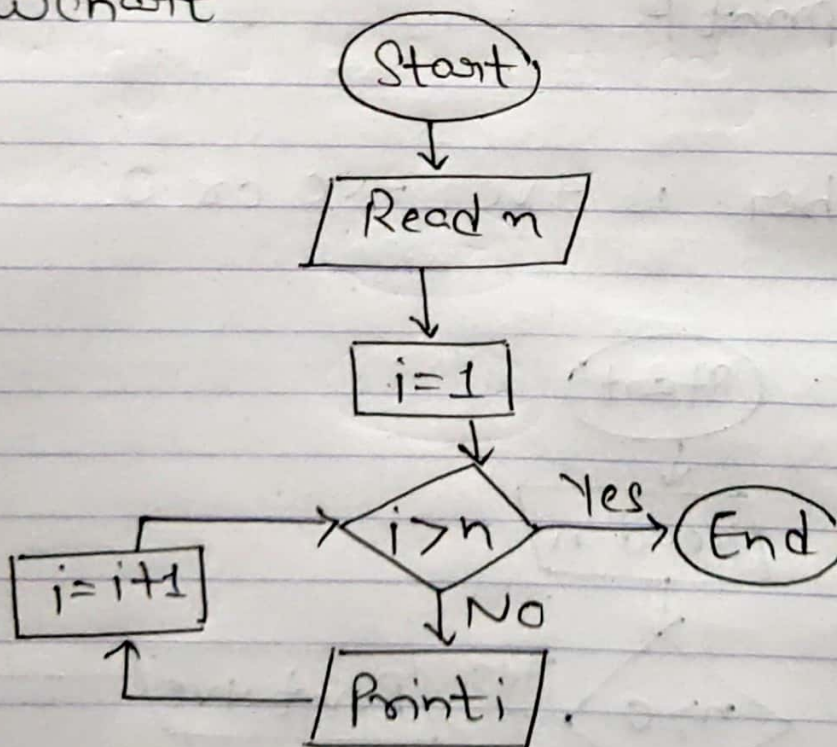 Start
Read n
i=1
i>n
Yes
End
No
i=i+1
Print i